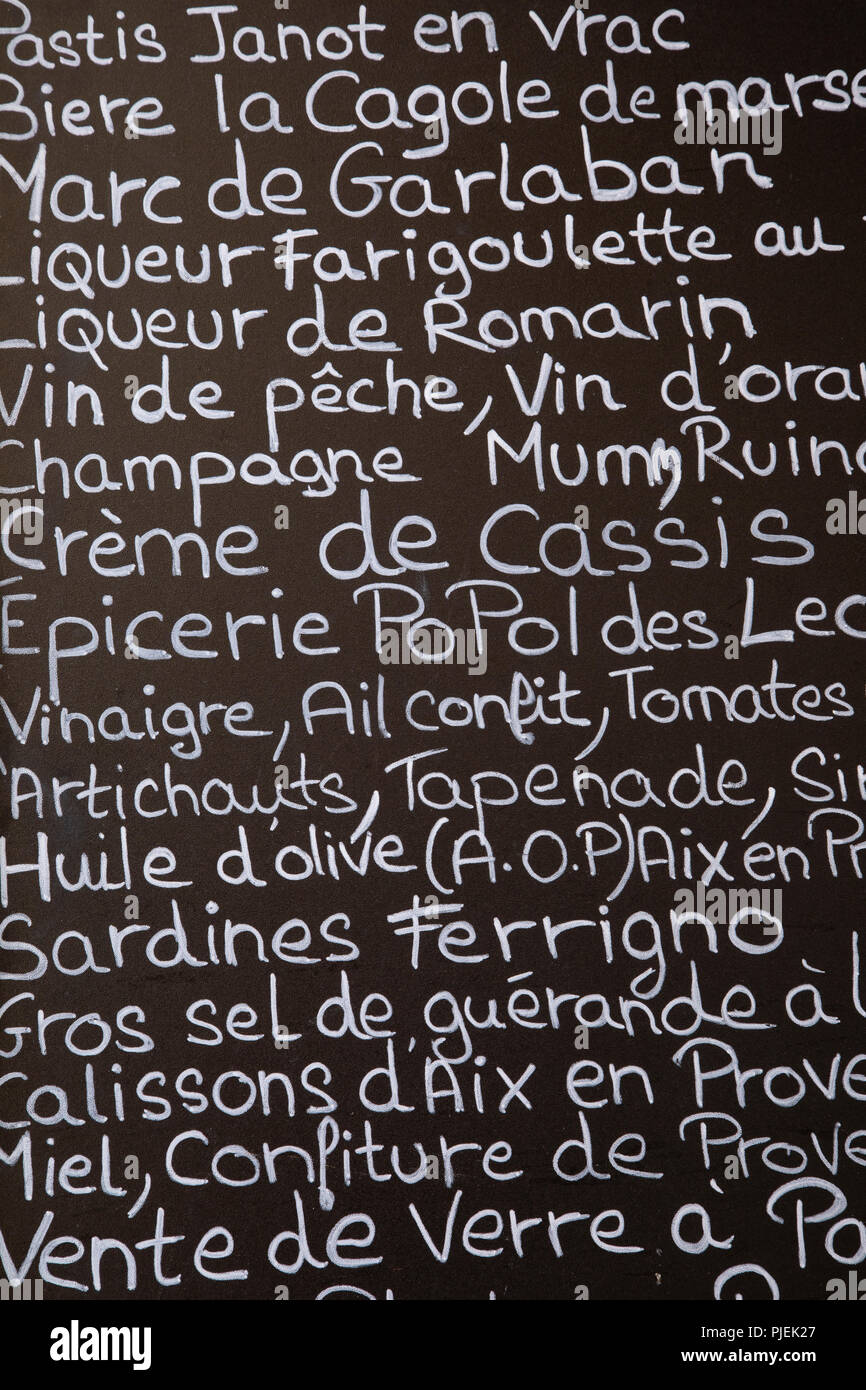 Pastis Janot en vrac
Biere la Cagole de marse
Marc de Garlaban
Liqueur Farigoulette au
Liqueur de Romarin
Vin de pêche, Vin d'ora
Champagne Mumm Ruina
Crème de Cassis
Épicerie PoPol des Lec
Vinaigre, Ail confit, Tomates
Artichauts, Tapenade, Sir
Huile d'olive (A.O.P) Aix en Pr
Sardines Ferrigno
Gros sel de guérande à l
Calissons d'Aix en Prove
Miel, Confiture de Prove
Vente de verre à Pa
alamy
Image ID: PJEK27
www.alamy.com